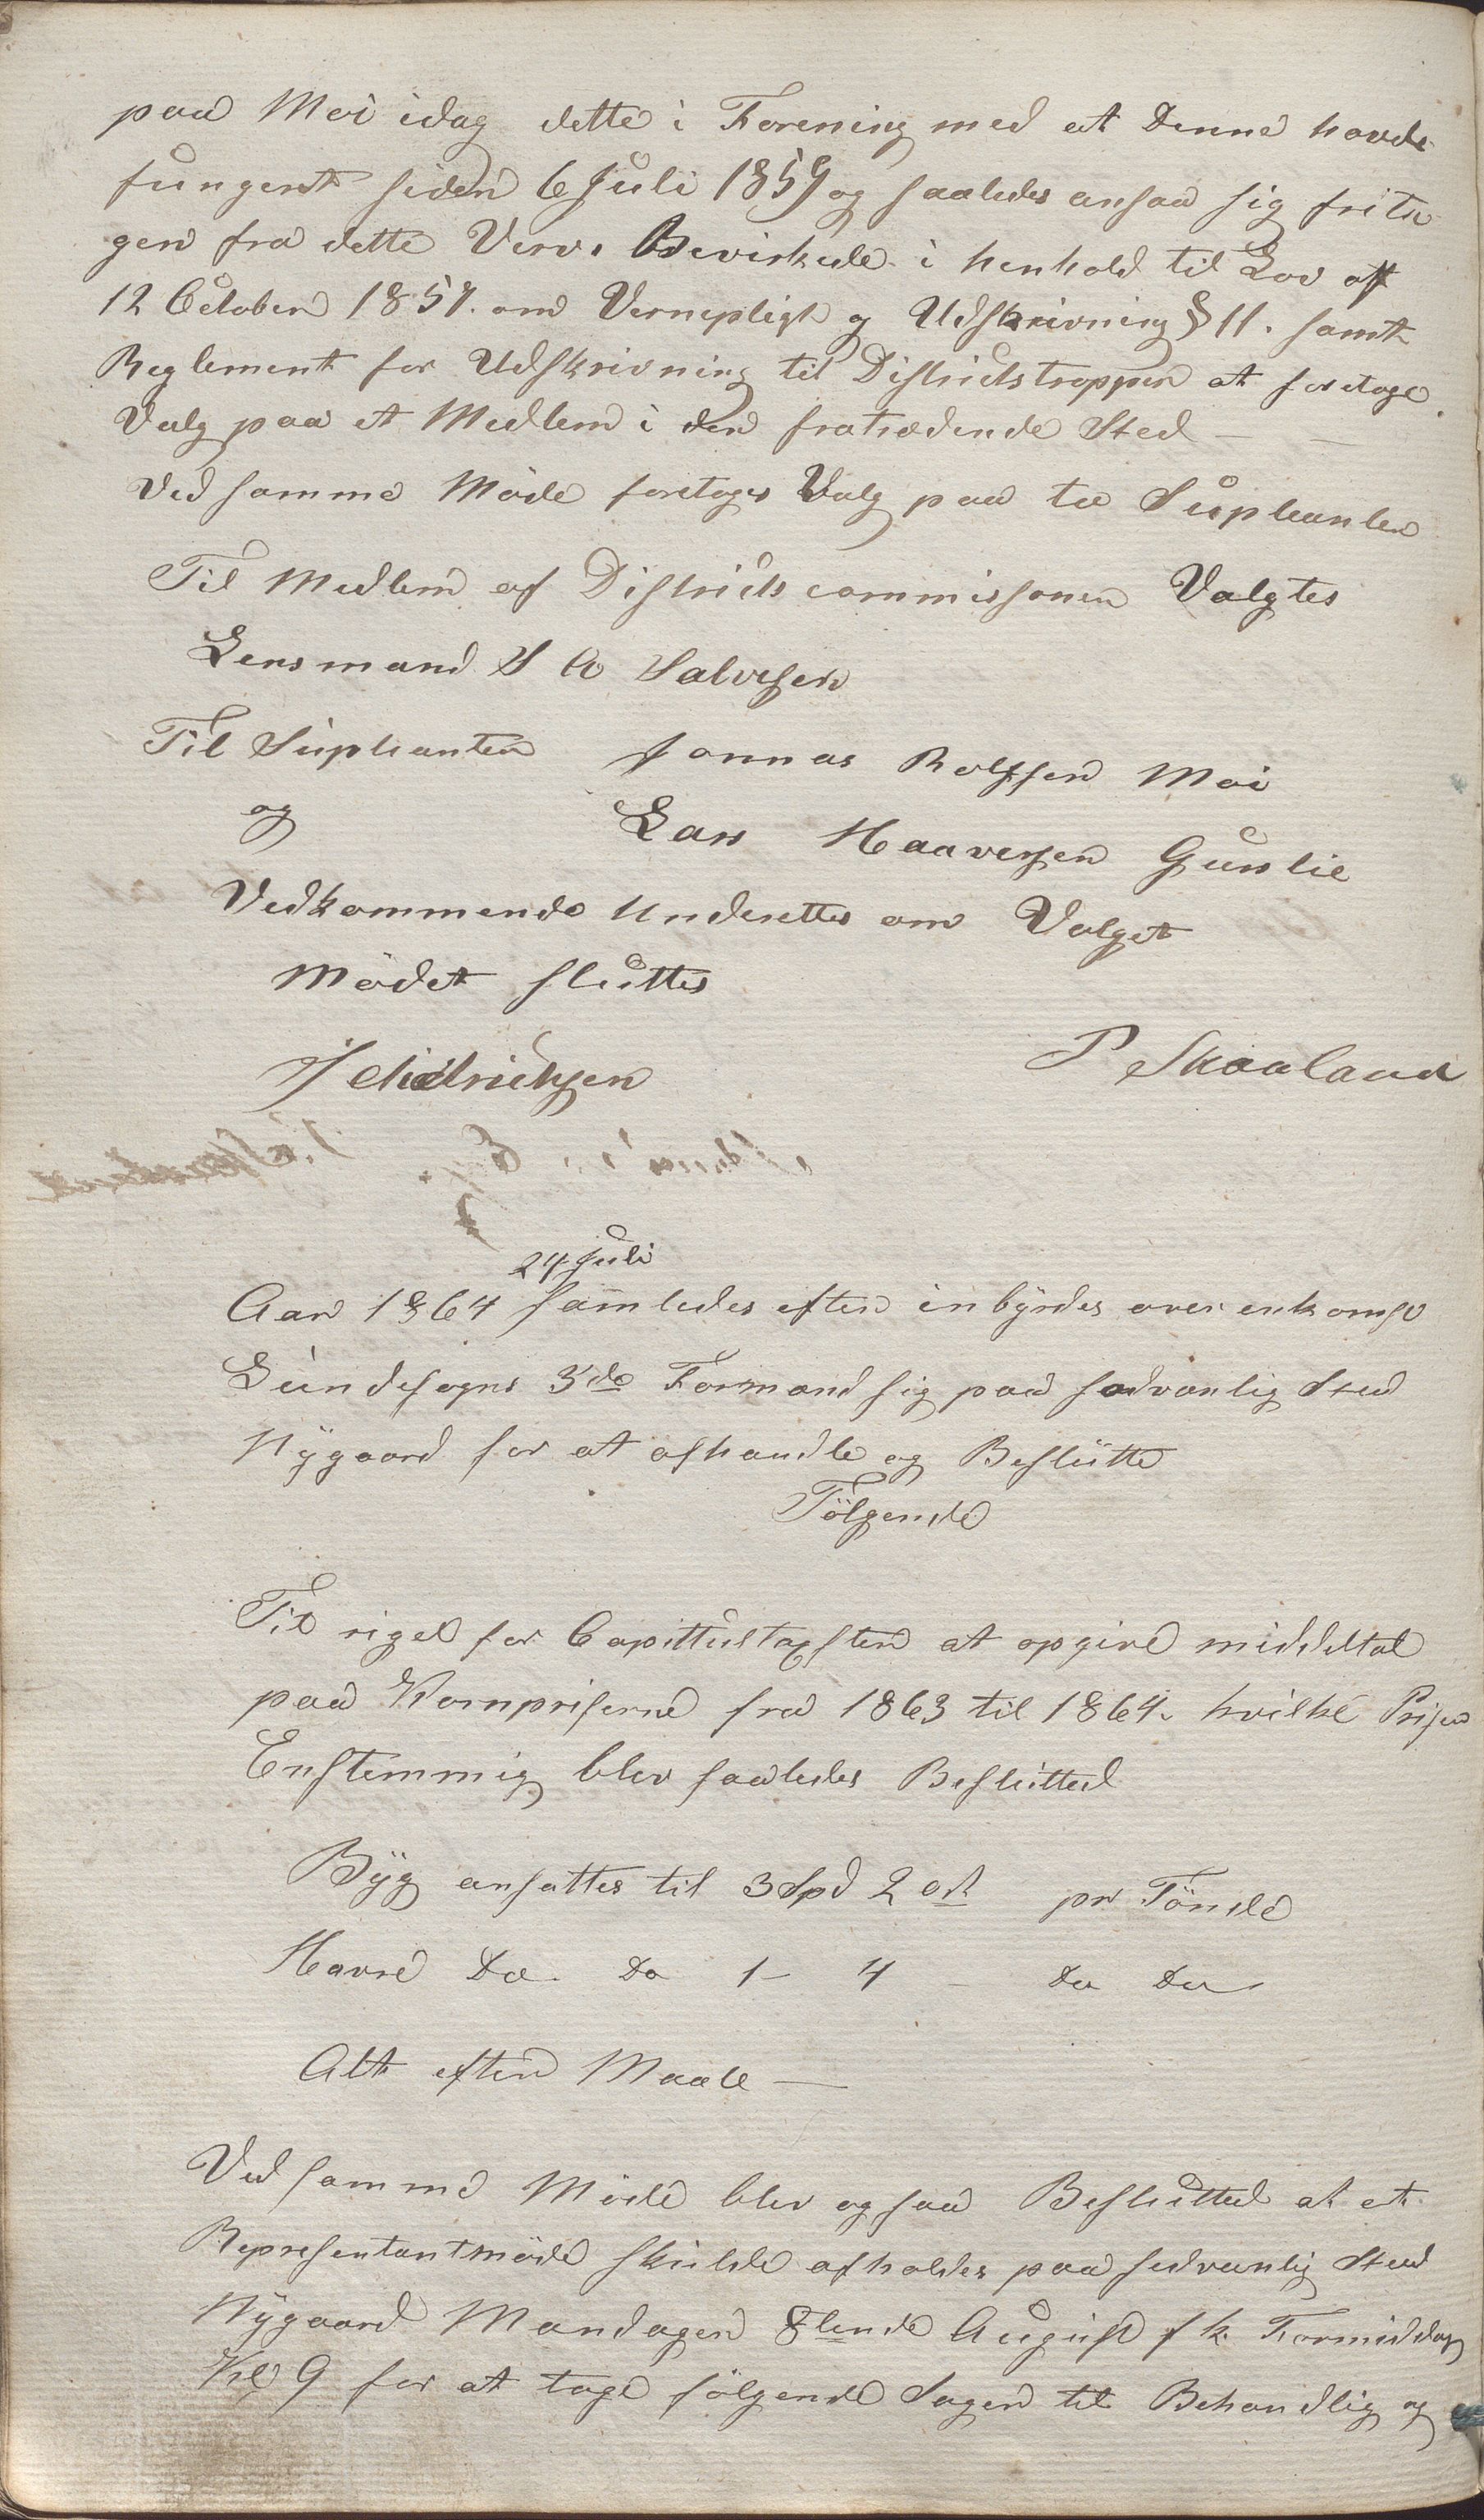 paa Moi idag dette i Forening med at Denne havde
fungert siden 6 Juli 1859 og saaledes ansaa sig fritа
gen fra dette Verv. Bevirkede i henhold til Lov af
12 October 1857. om Vernepligt og Udskrivning § 11. samt
Reglement for Udskrivning til Districtstropper at foretage
Valg paa et Medlem i den fratrædende Sted —
Ved samme Møde foretoges Valg paa to Supleanter
Til Medlem af Districtscommissonen Valgtes
Lensmand S A Salvesen
Til Supleanter Jonnas Rolfsen Moi
og Lars Haaversen Gurslie
Vedkommende Underettes om Valget
Mødet sluttes
P Skaaland
24 Juli
Aar 1864 samledes efter inbyrdes overenkomst
Lundesogns 3de Formænd sig paa sædvanlig Sted
Nygaard for at afhandle og Beslutte
Følgende
Til rigel for Capittulstaxsten at opgive middeltal
paa Kornpriserne fra 1863 til 1864. hvilke Priser
Enstemmig blev saaledes Beslutted
Byg ansattes til 3 Spd 2 ort pr Tønde
Havre Do. Do 1 – 4 – Do Do
Alt efter Maale —
Ved samme Møde blev ogsaa Beslutted at et
Representantmøde skulde afholdes paa sedvanlig Sted
Nygaard Mandagen 8tende August f k. Formiddag
Kl 9 for at tage følgende Sager til Behandlig og